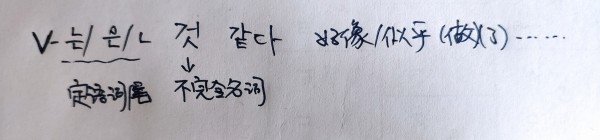 V-는/은/ㄴ 것 같다 好像/似乎(做)(了)……
↓
定语词尾 不完全名词